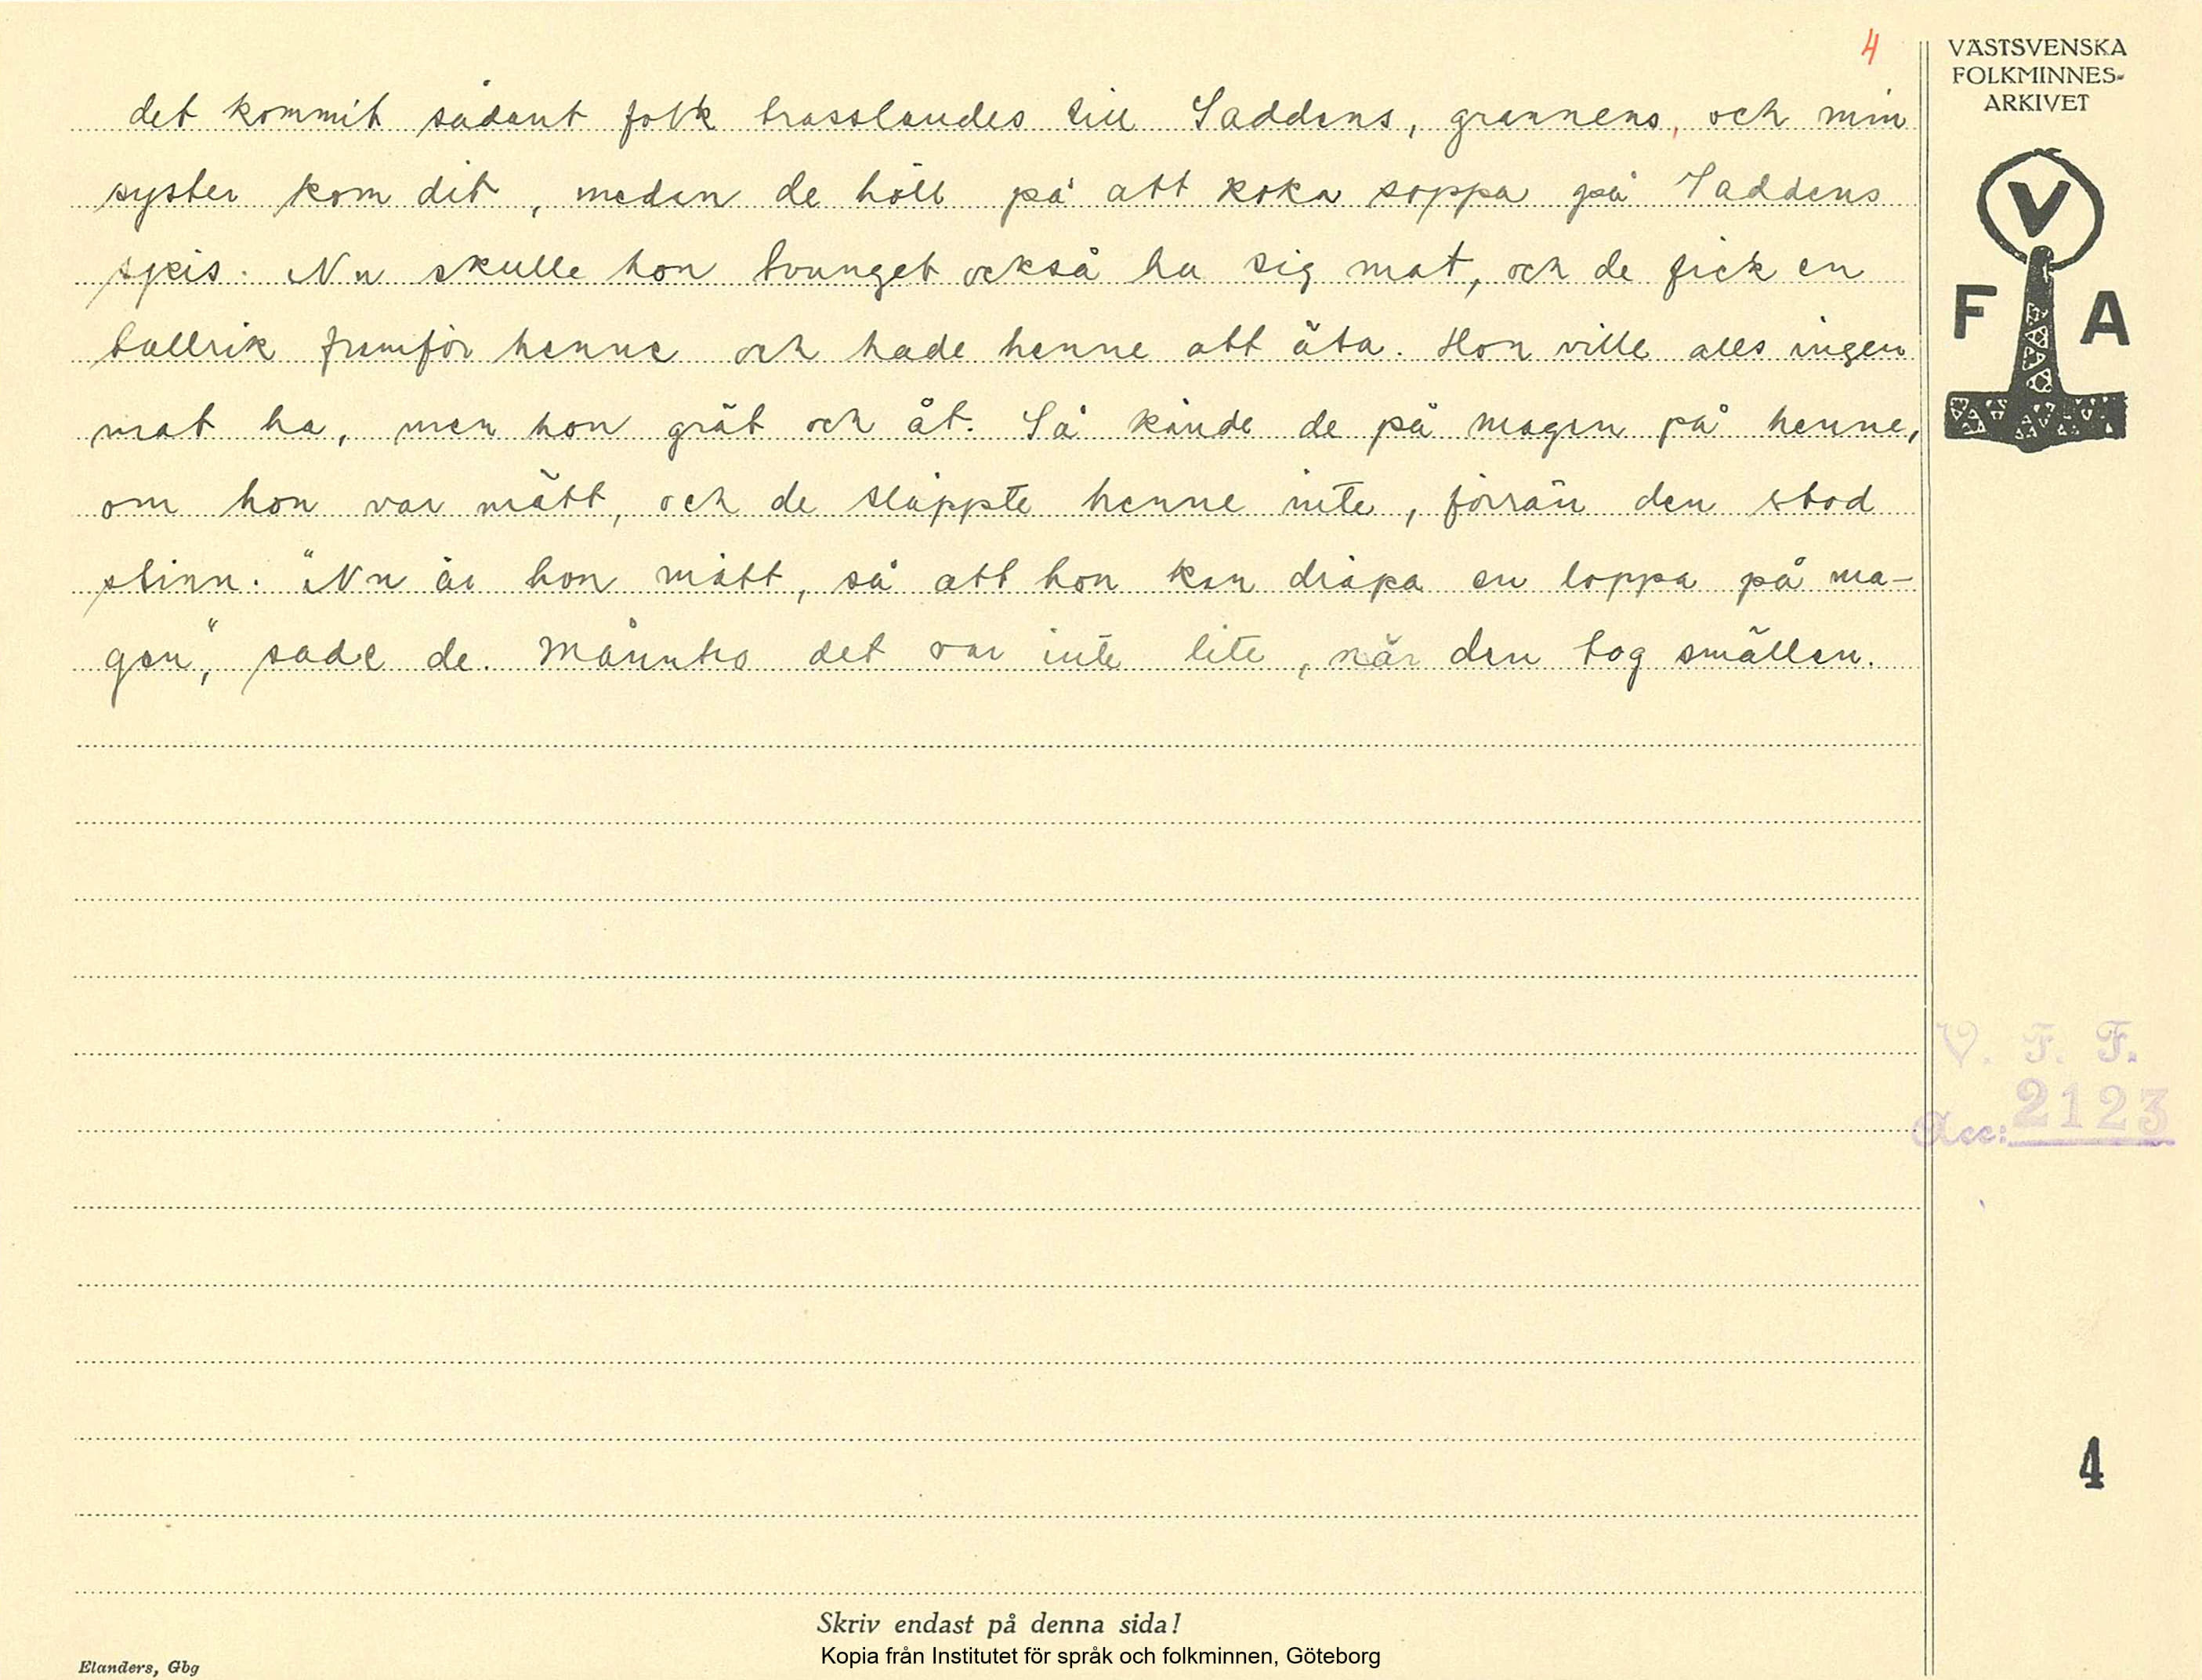 4
VÄSTSVENSKA
FOLKMINNES-
ARKIVET
V
F A
det kommit sådant folk trasslandes till Saddens, grannens, och min
syster kom dit, medan de höll på att koka soppa på Saddens
spis. Nu skulle hon tvunget också ha sig mat, och de fick en
tallrik framför henne och hade henne att äta. Hon ville alls ingen
mat ha, men hon grät och åt. Så kände de på magen på henne,
om hon var mätt, och de släppte henne inte, förrän den stod
stinn. "Nu är hon mätt, så att hon kan dräpa en loppa på ma-
gen", sade de. Månntro det var inte lite, när den tog smällen.
V. F. F.
Acc: 2123
4
Skriv endast på denna sida!
Kopia från Institutet för språk och folkminnen, Göteborg
Elanders, Gbg